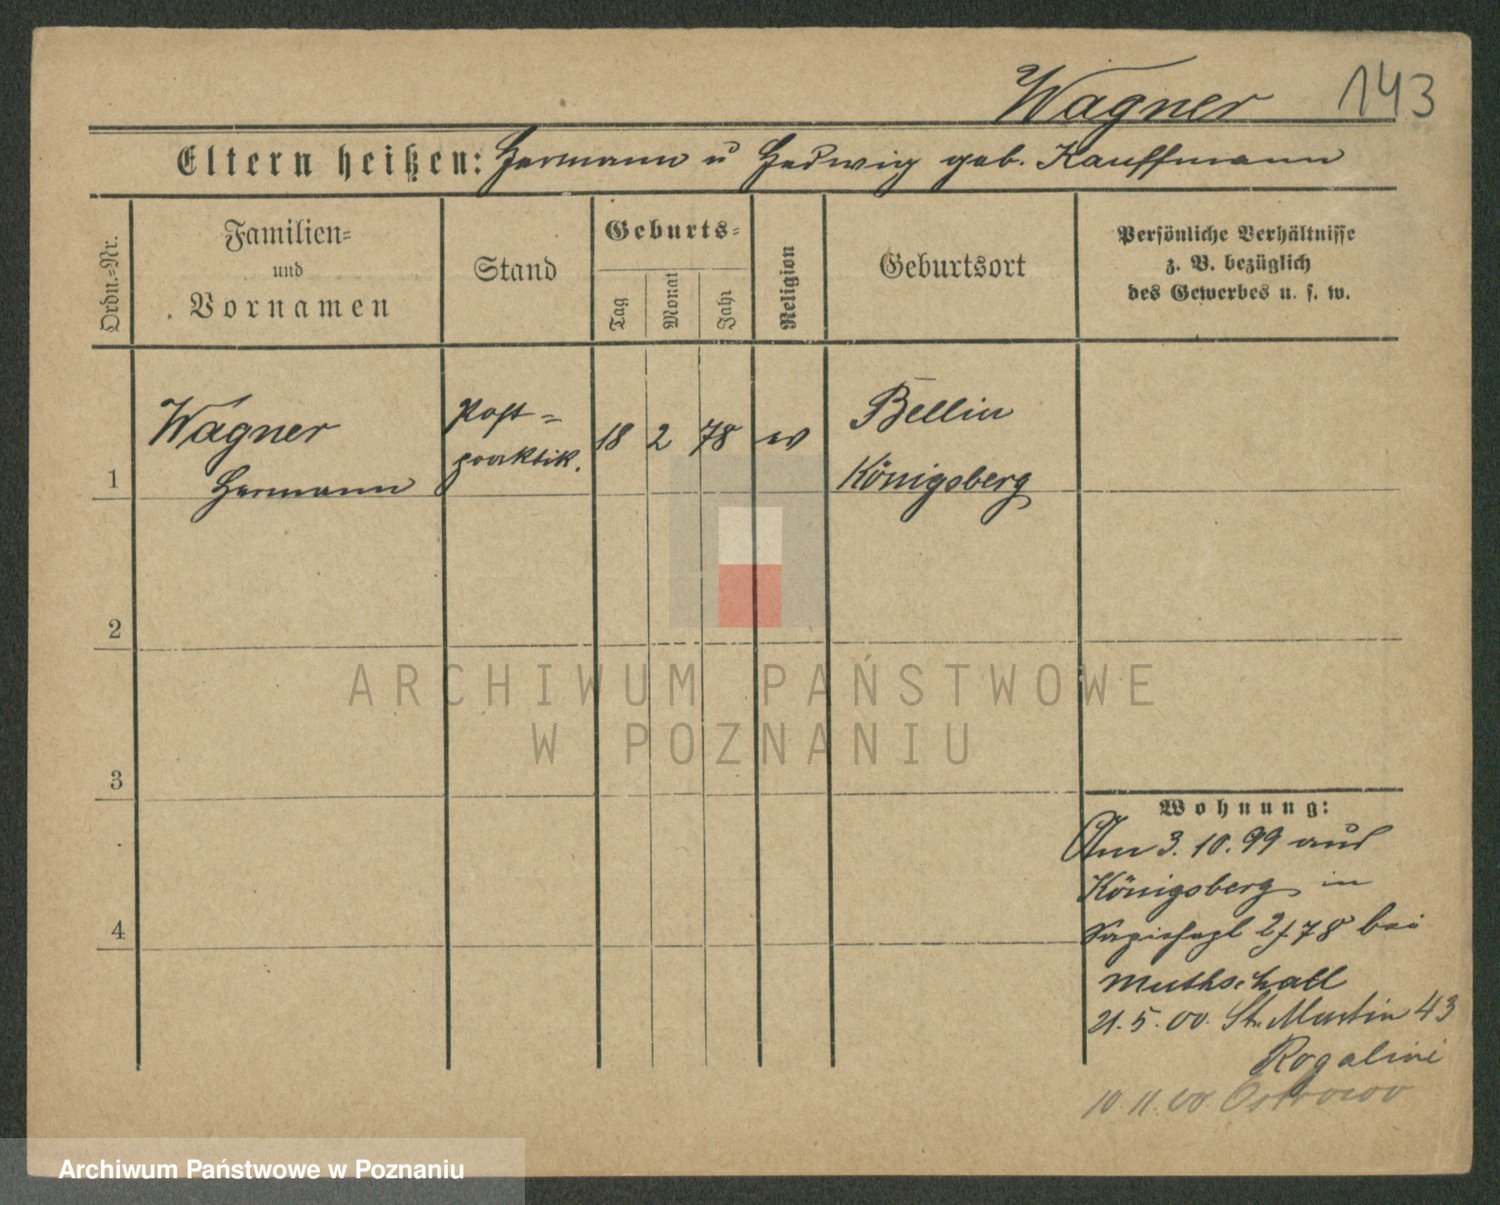 Wagner 143
Eltern heißen: Hermann u Hedwig geb. Kauffmann
Ordn.=Nr.
Familien=
und
Vornamen
Stand
Geburts=
Tag
Monat
Jahr
Religion
Geburtsort
Persönliche Verhältnisse
z. B. bezüglich
des Gewerbes u. s. w.
1
Wagner
Hermann
Post=
praktik.
18 2 78 ev
Bellin
Königsberg
2
3
4
Wohnung:
Am 3. 10. 99 aus
Königsberg in
2/78 bei
Muthschall
21. 5. 00. St. Martin 43
Rogalini
10. 11. 00. Ostrowo
ARCHIWUM PAŃSTWOWE
W POZNANIU
Archiwum Państwowe w Poznaniu